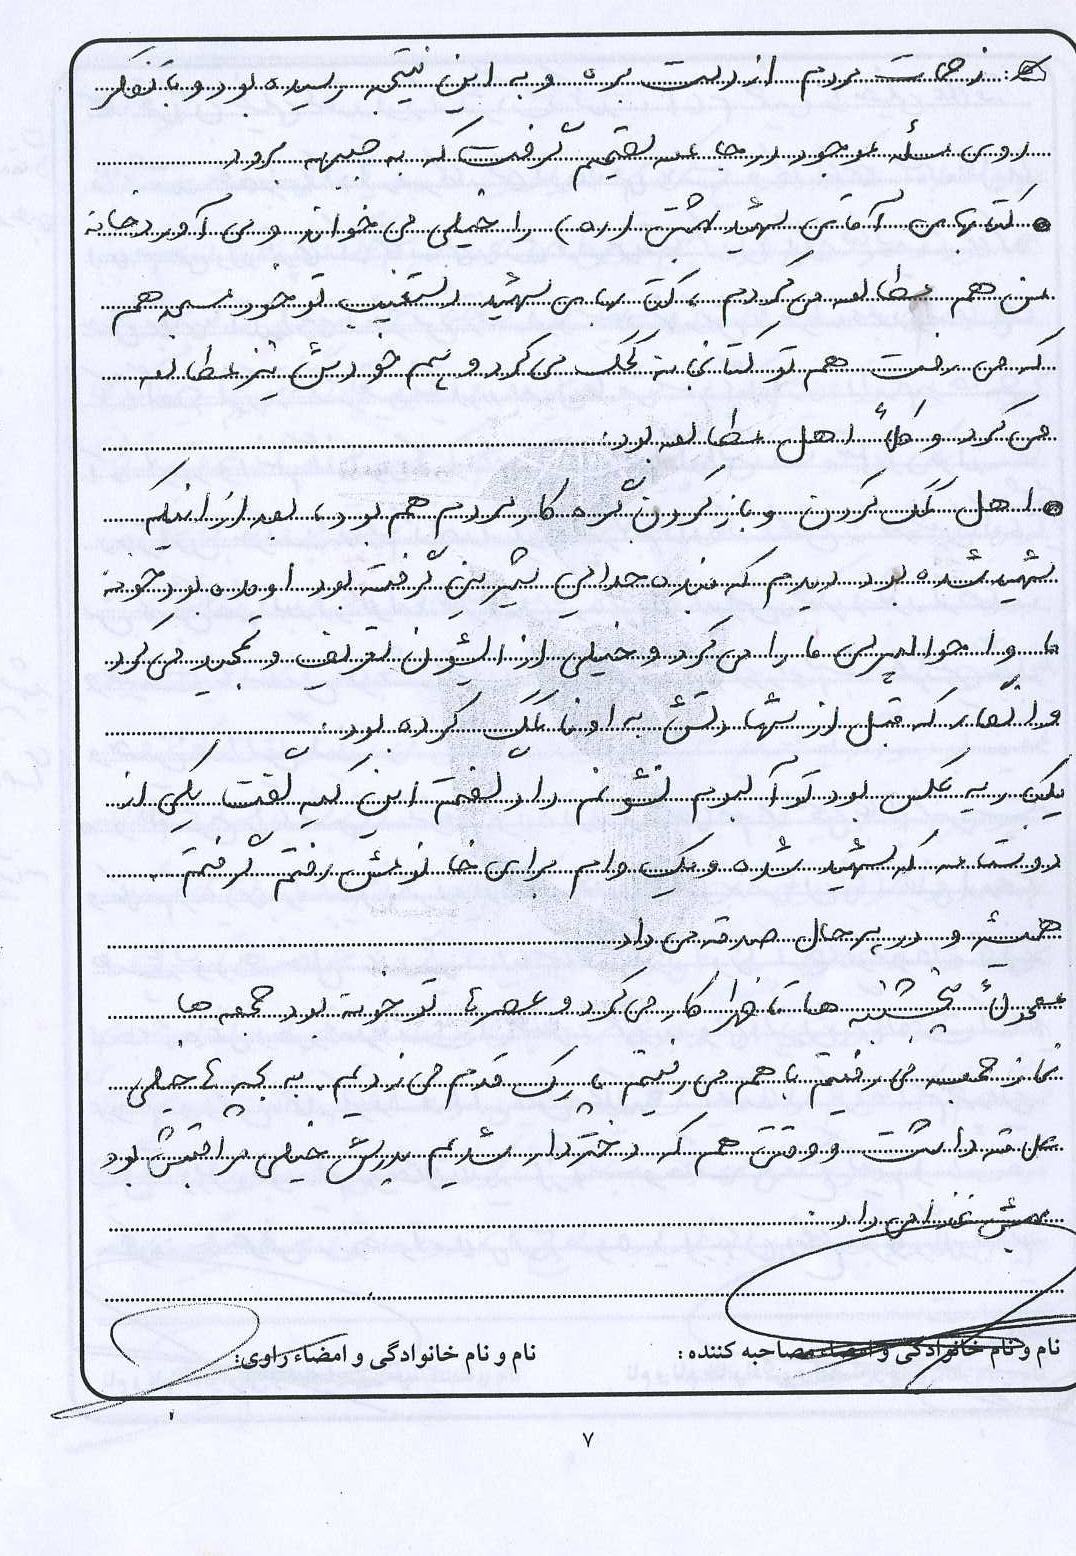 زحمات مردم از دست بره و به این نتیجه رسیده بود و با تفکر
روی مسئله موجود در جامعه تصمیم گرفت که به جبهه برود.
کتابهای آقای شهید بهشتی (ره) را خیلی می خواند و می آورد خانه
من هم مطالعه می کردم، کتابهای شهید دستغیب تو خود مسجد هم
که می رفت هم تو کتابخانه کمک می کرد و هم خودش نیز مطالعه
می کرد و کلاً اهل مطالعه بود.
اهل کمک کردن و باز کردن گره کار مردم هم بود، بعد از اینکه
شهید شده بود دیدم که بنده خدایی شیرینی گرفته بود اومده بود خونه
ما و احوالپرسی ما را می کرد و خیلی از ایشون تعریف و تمجید می کرد
و انگار که قبل از شهادتش به اونا کمک کرده بود.
یکی یه عکس بود تو آلبوم نشونم داد گفتم این کیه گفت یکی از
دوستامه که شهید شده و یک وام برای خانواده‌ش رفتم گرفتم.
همیشه و در هر حال صدقه می داد.
معمولاً پنجشنبه ها تا ظهر کار می کرد و عصرها تو خونه بود جمعه ها
نماز جمعه می رفتیم با هم می رفتیم پارک قدم می زدیم. به بچه ها خیلی
علاقه داشت و وقتی هم که دختردار شدیم پدرش خیلی مراقبش بود
بهش غذا می داد.
نام و نام خانوادگی و امضاء مصاحبه کننده: نام و نام خانوادگی و امضاء راوی:
۷